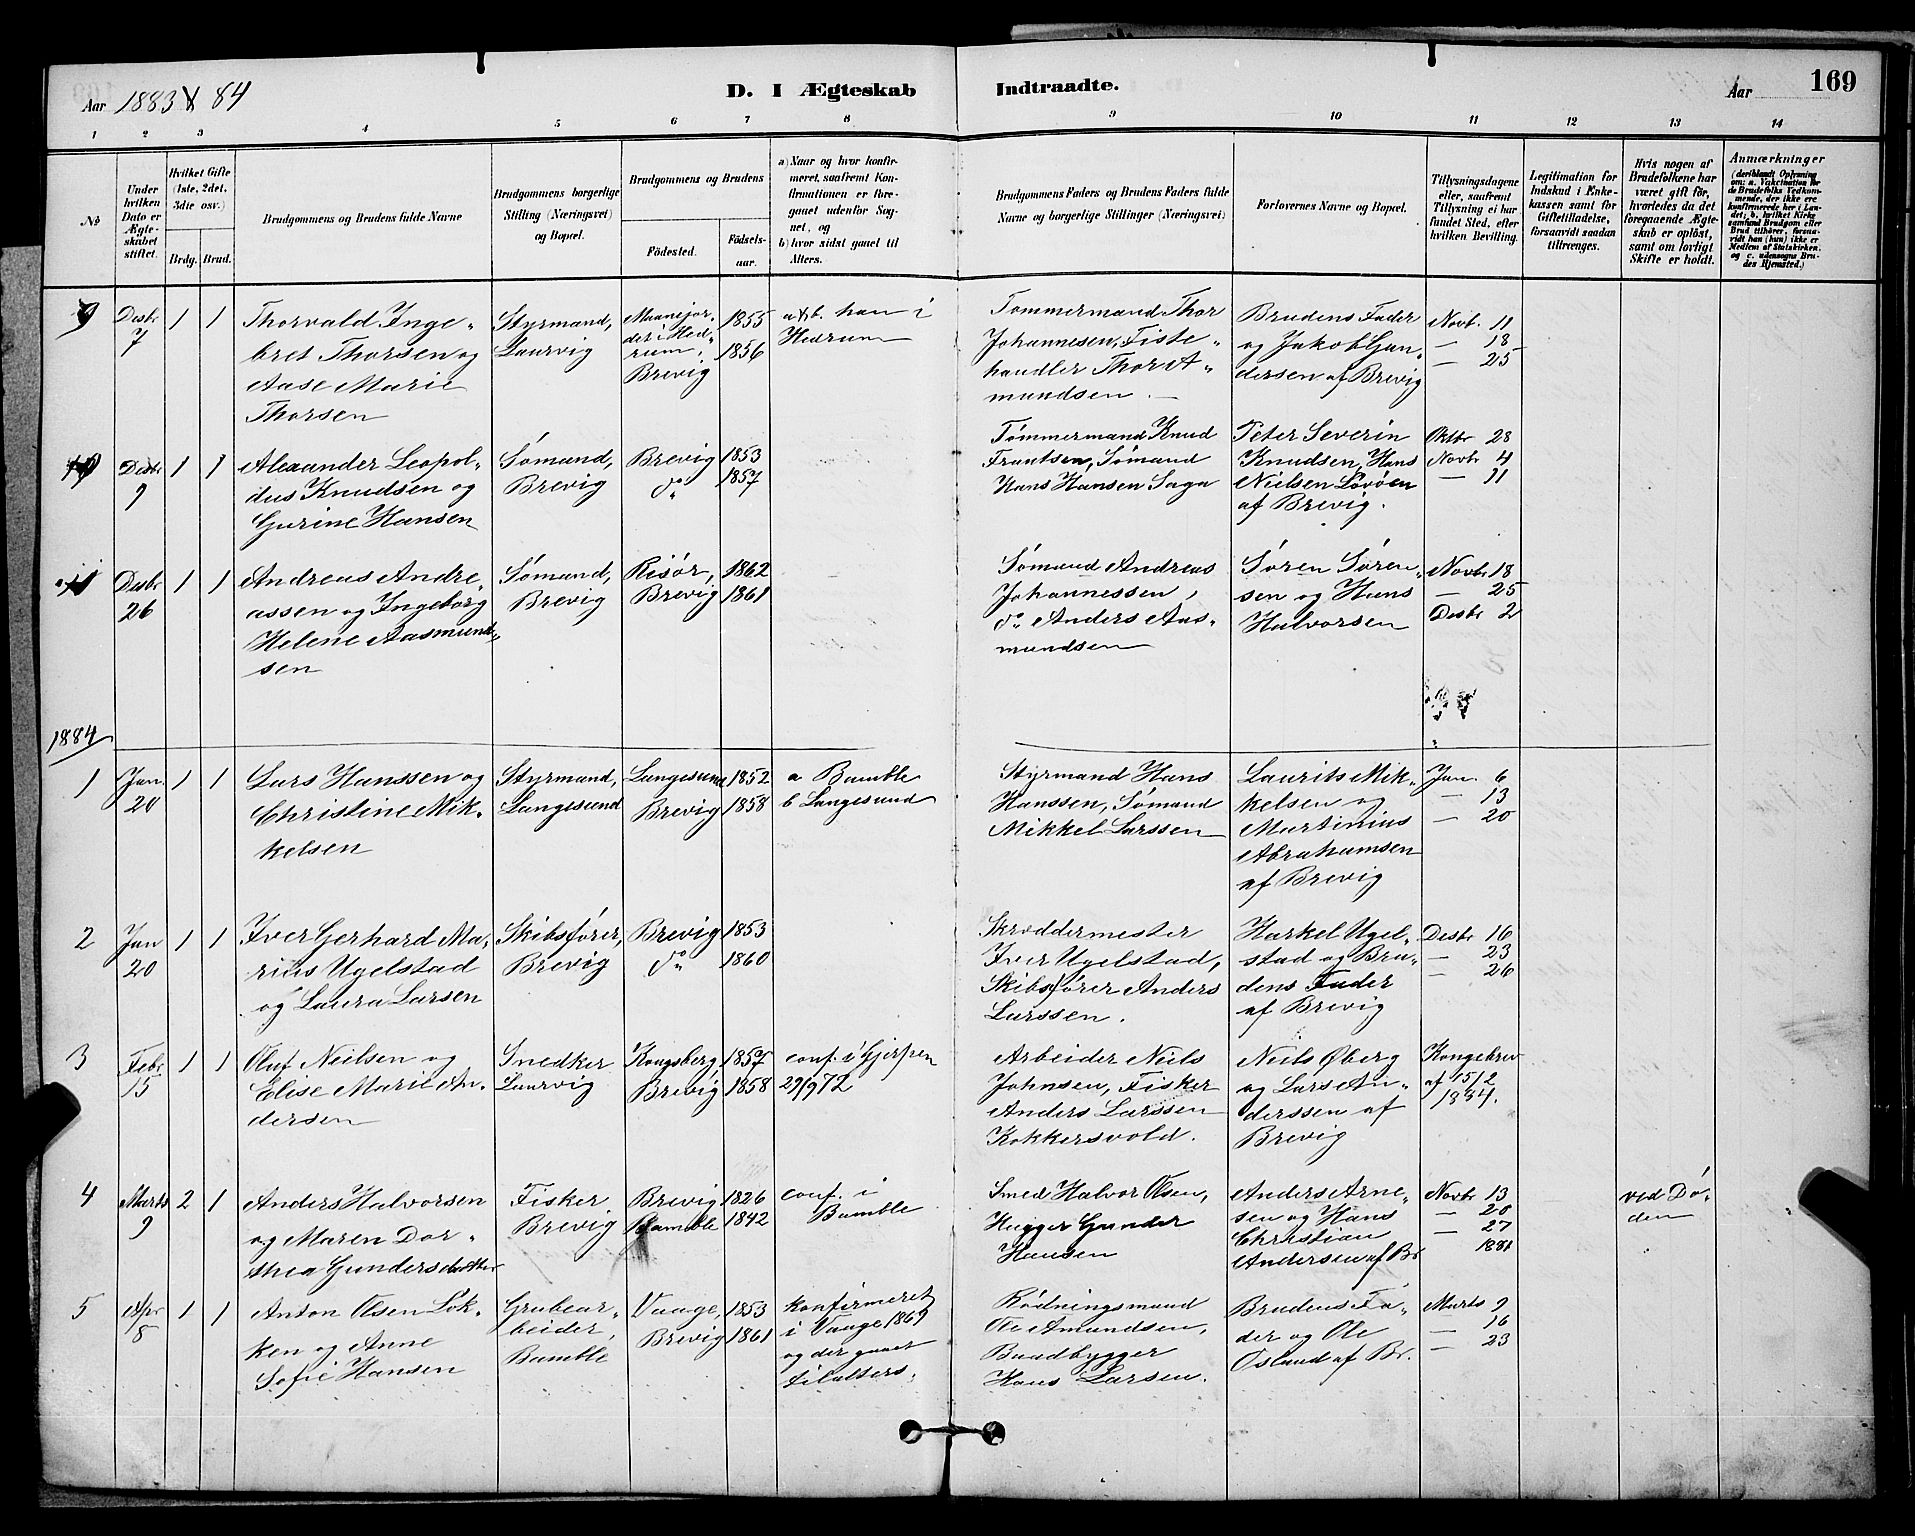 Aar 1883 & 84
D. I Ægteskab Indtraadte.
Aar 169
1 2 3 4 5 6 7 8 9 10 11 12 13 14
No
Under hvilken Dato er Ægteskabet stiftet.
Hvilket Gifte (1ste, 2det, 3die osv.)
Brdg. Brud.
Brudgommens og Brudens fulde Navne
Brudgommens borgerlige Stilling (Næringsvei) og Bopæl.
Brudgommens og Brudens
Fødested.
Fødselsaar.
a) Naar og hvor konfirmeret, saafremt Konfirmationen er foregaaet udenfor Sognet, og
b) hvor sidst gaaet til Alters.
Brudgommens Faders og Brudens Faders fulde Navne og borgerlige Stillinger (Næringsvei)
Forlovernes Navne og Bopæl.
Tillysningsdagene eller, saafremt Tillysning ei har fundet Sted, efter hvilken Bevilling.
Legitimation for Indskud i Enkekassen samt for Giftetilladelse, forsaavidt saadan tiltrænges.
Hvis nogen af Brudefolkene har været gift før, hvorledes da det foregaaende Ægteskab er opløst, samt om lovligt Skifte er holdt.
Anmærkninger
(deriblandt Oplysning om: a. Vakcination for de Brudefolks Vedkommende, der ikke ere konfirmerede her i Landet; b. hvilket Kirkesamfund Brudgom eller Brud tilhører, forsaavidt han (hun) ikke er Medlem af Statskirken, og c. udensogns Brudes Hjemsted.)
9 Desbr 7 1 1
Thorvald Inge-
bret Thorsen og
Aase Marie
Thorsen
Styrmand,
Laurvig
der i Hed-
rum,
Brevig
1855
1856
a & b. han i
Hedrum
Tømmermand Thor
Johannesen, Fiske-
handler Thor A-
mundsen.
Brudens Fader
og Jakob Gun-
dersen af Brevig
Novb. 11
— 18
— 25
10 Desbr 9 1 1
Alexander Leopol-
dus Knudsen og
Gurine Hansen
Sømand,
Brevig
Brevig
do
1853
1857
Tømmermand Knud
Frantsen, Sømand
Hans Hansen Saga
Peter Severin
Knudsen, Hans
Nielsen Løvøen
af Brevig.
Oktbr 28
Novbr 4
— 11
11 Desbr 26 1 1
Andreas Andre-
assen og Ingeborg
Helene Aasmund-
sen
Sømand,
Brevig
Risør,
Brevig
1862
1861
Sømand Andreas
Johannessen,
do Anders Aas-
mundsen
Søren Søren-
sen og Hans
Halvorsen
Novbr 18
— 25
Desbr 2
1884
1 Jan. 20 1 1
Lars Hanssen og
Christine Mik-
kelsen
Styrmand,
Langesund
Langesund
Brevig
1852
1858
a Bamble
b Langesund
Styrmand Hans
Hanssen, Sømand
Mikkel Larssen
Laurits Mik-
kelsen og
Martinius
Abrahamsen
af Brevig
Jan. 6
— 13
— 20
2 Jan 20 1 1
Iver Gerhard Ma-
rius Ugelstad
og Laura Larsen
Skibsfører,
Brevig
Brevig
do
1853
1860
Skræddermester
Iver Ugelstad,
Skibsfører Anders
Larssen.
Harkel Ugel-
stad og Bru-
dens Fader
af Brevig
Desbr 16
— 23
— 26
3 Febr 15 1 1
Oluf Neilsen og
Elise Marie An-
dersen
Snedker
Laurvig
Kongsberg,
Brevig
1857
1858
conf. i Gjerpen
29/9 72
Arbeider Niels
Johnsen, Fisker
Anders Larssen
Kokkersvold.
Neils Øberg
og Lars An-
derssen af
Brevig
Kongebrev
af 15/2
1884.
4 Marts 9 2 1
Anders Halvorsen
og Maren Dor-
thea Gundersdatter
Fisker
Brevig
Brevig
Bamble
1826
1842
conf. i
Bamble
Smed Halvor Olsen,
Hugger Gunder
Hansen
Anders Arne-
sen og Hans
Christian
Andersen af Br.
Novbr 13
— 20
— 27
1881
ved Dø-
den
5 Apr 8 1 1
Anton Olsen Løk-
ken og Anne
Sofie Hansen
Grubear-
beider,
Bamble
Vaage,
Brevig
1853
1861
konfirmeret
i Vaage 1869
og der gaaet
til Alters.
Rødningsmand
Ole Amundsen,
Baadbygger
Hans Larsen.
Brudens Fa-
der og Ole
Østund af Br.
Marts 9
— 16
— 23